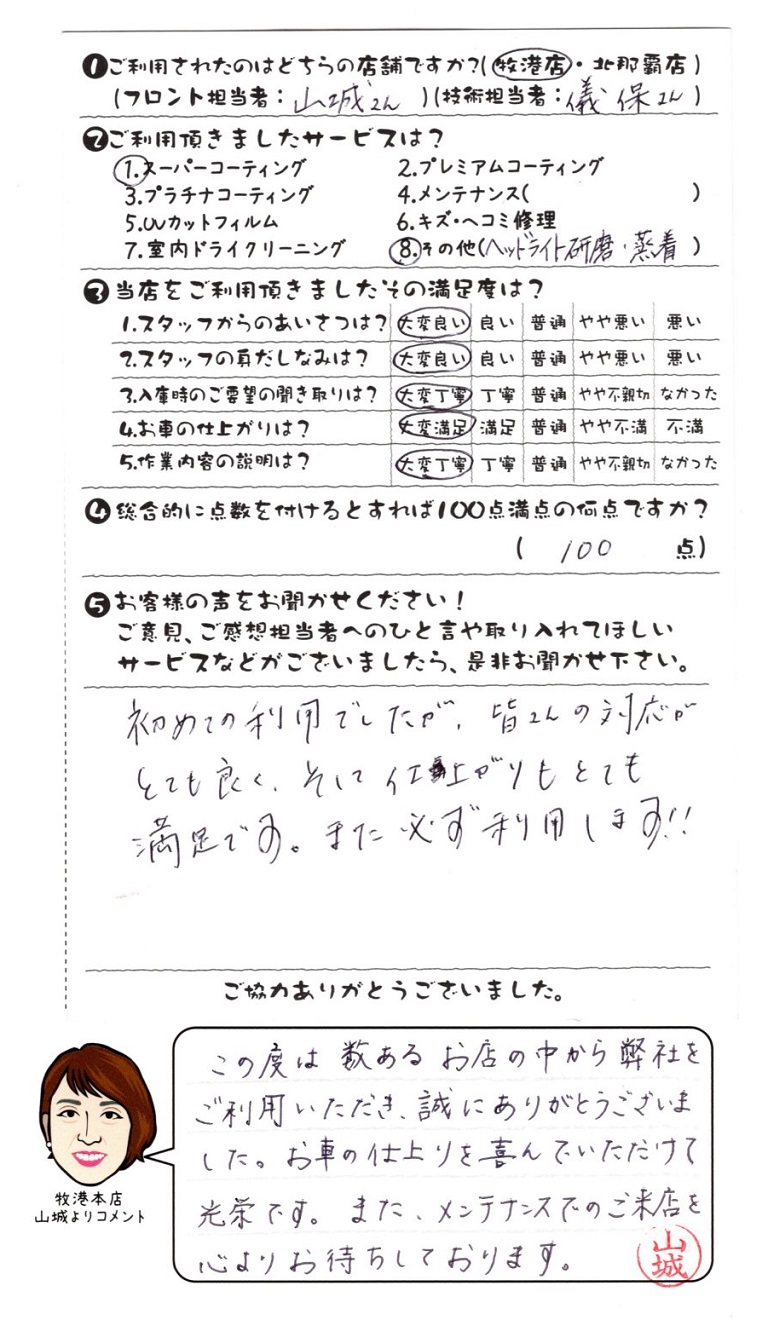 ❶ご利用されたのはどちらの店舗ですか?(牧港店・北那覇店)
(フロント担当者:山城さん)(技術担当者:儀保さん)
❷ご利用頂きましたサービスは?
1.スーパーコーティング 2.プレミアムコーティング
3.プラチナコーティング 4.メンテナンス( )
5.UVカットフィルム 6.キズ・ヘコミ修理
7.室内ドライクリーニング 8.その他(ヘッドライト研磨・蒸着)
❸当店をご利用頂きましたその満足度は?
1.スタッフからのあいさつは? 大変良い 良い 普通 やや悪い 悪い
2.スタッフの身だしなみは? 大変良い 良い 普通 やや悪い 悪い
3.入庫時のご要望の聞き取りは? 大変丁寧 丁寧 普通 やや不親切 なかった
4.お車の仕上がりは? 大変満足 満足 普通 やや不満 不満
5.作業内容の説明は? 大変丁寧 丁寧 普通 やや不親切 なかった
❹総合的に点数を付けるとすれば100点満点の何点ですか?
(100 点)
❺お客様の声をお聞かせください!
ご意見、ご感想担当者へのひと言や取り入れてほしい
サービスなどがございましたら、是非お聞かせ下さい。
初めての利用でしたが、皆さんの対応が
とても良く、そして仕上がりもとても
満足です。また必ず利用します!!
ご協力ありがとうございました。
この度は数あるお店の中から弊社を
ご利用いただき、誠にありがとうございま
した。お車の仕上りを喜んでいただけて
光栄です。また、メンテナンスでのご来店を
心よりお待ちしております。
山城
牧港本店
山城よりコメント